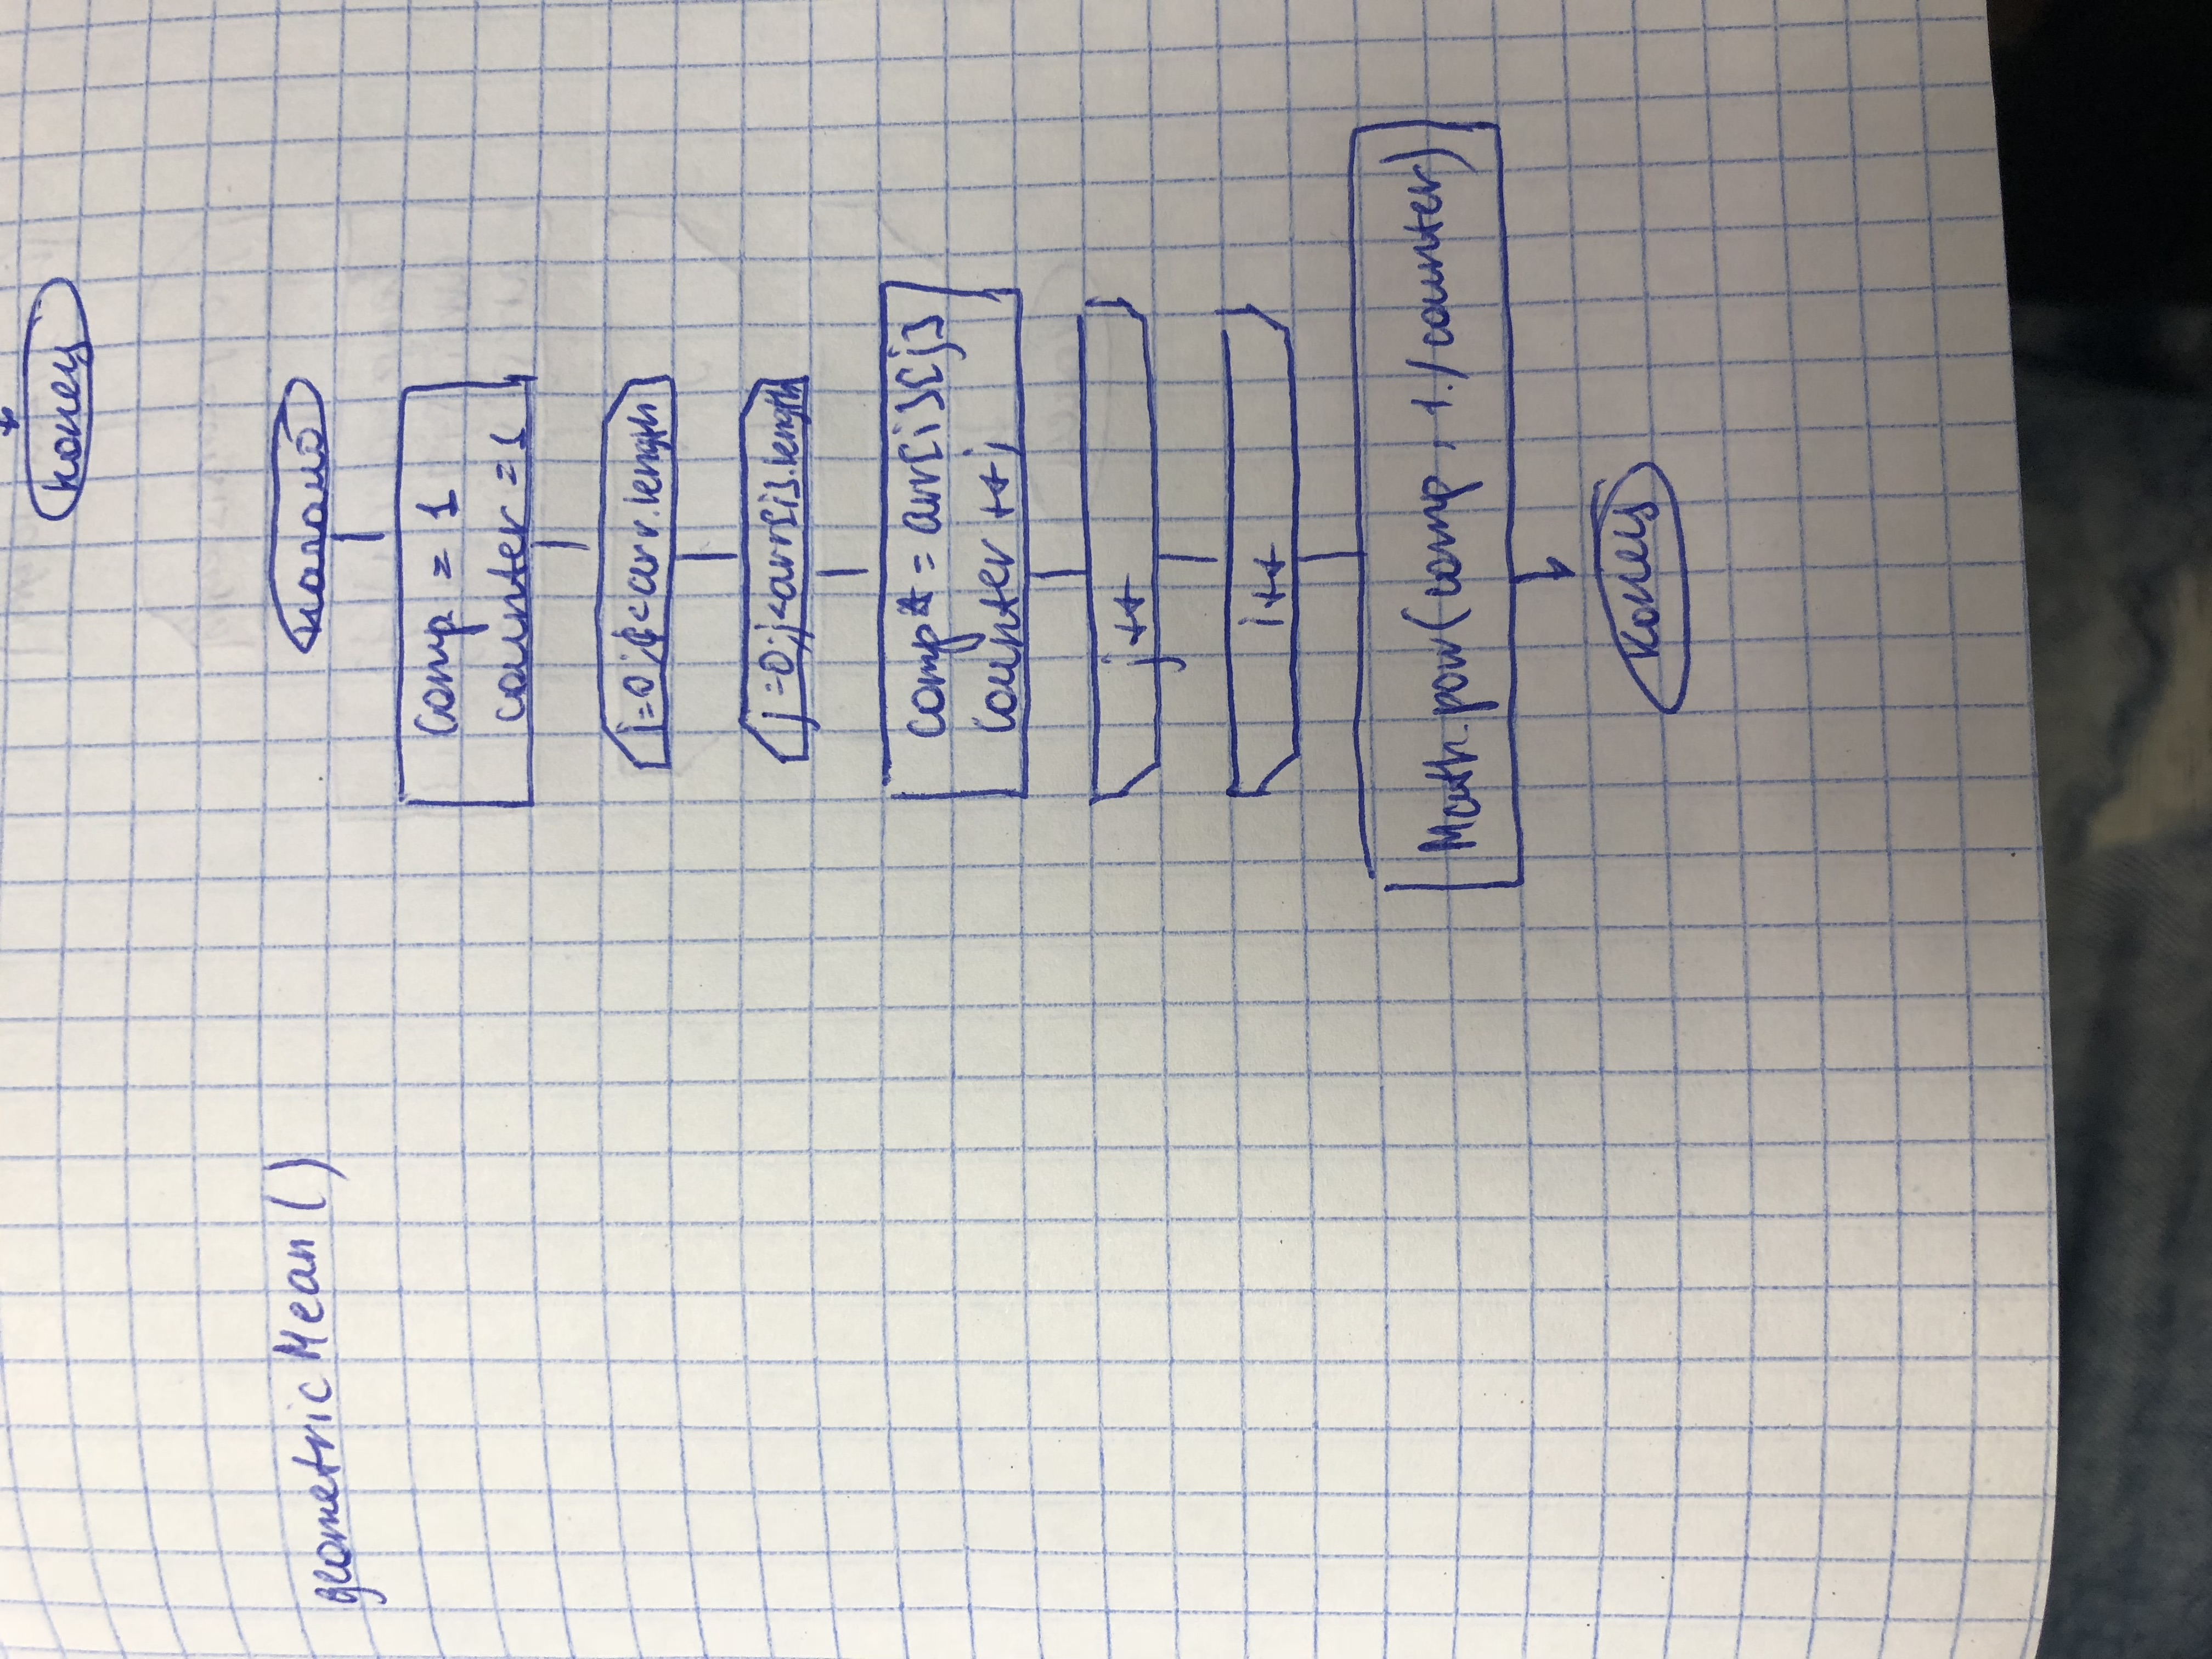 конец
geometricMean()
начало
comp = 1
counter = 1
i=0; i<arr.length
j=0; j<arr[i].length
comp* = arr[i][j]
counter ++;
j++
i++
Math.pow(comp, 1./counter)
конец